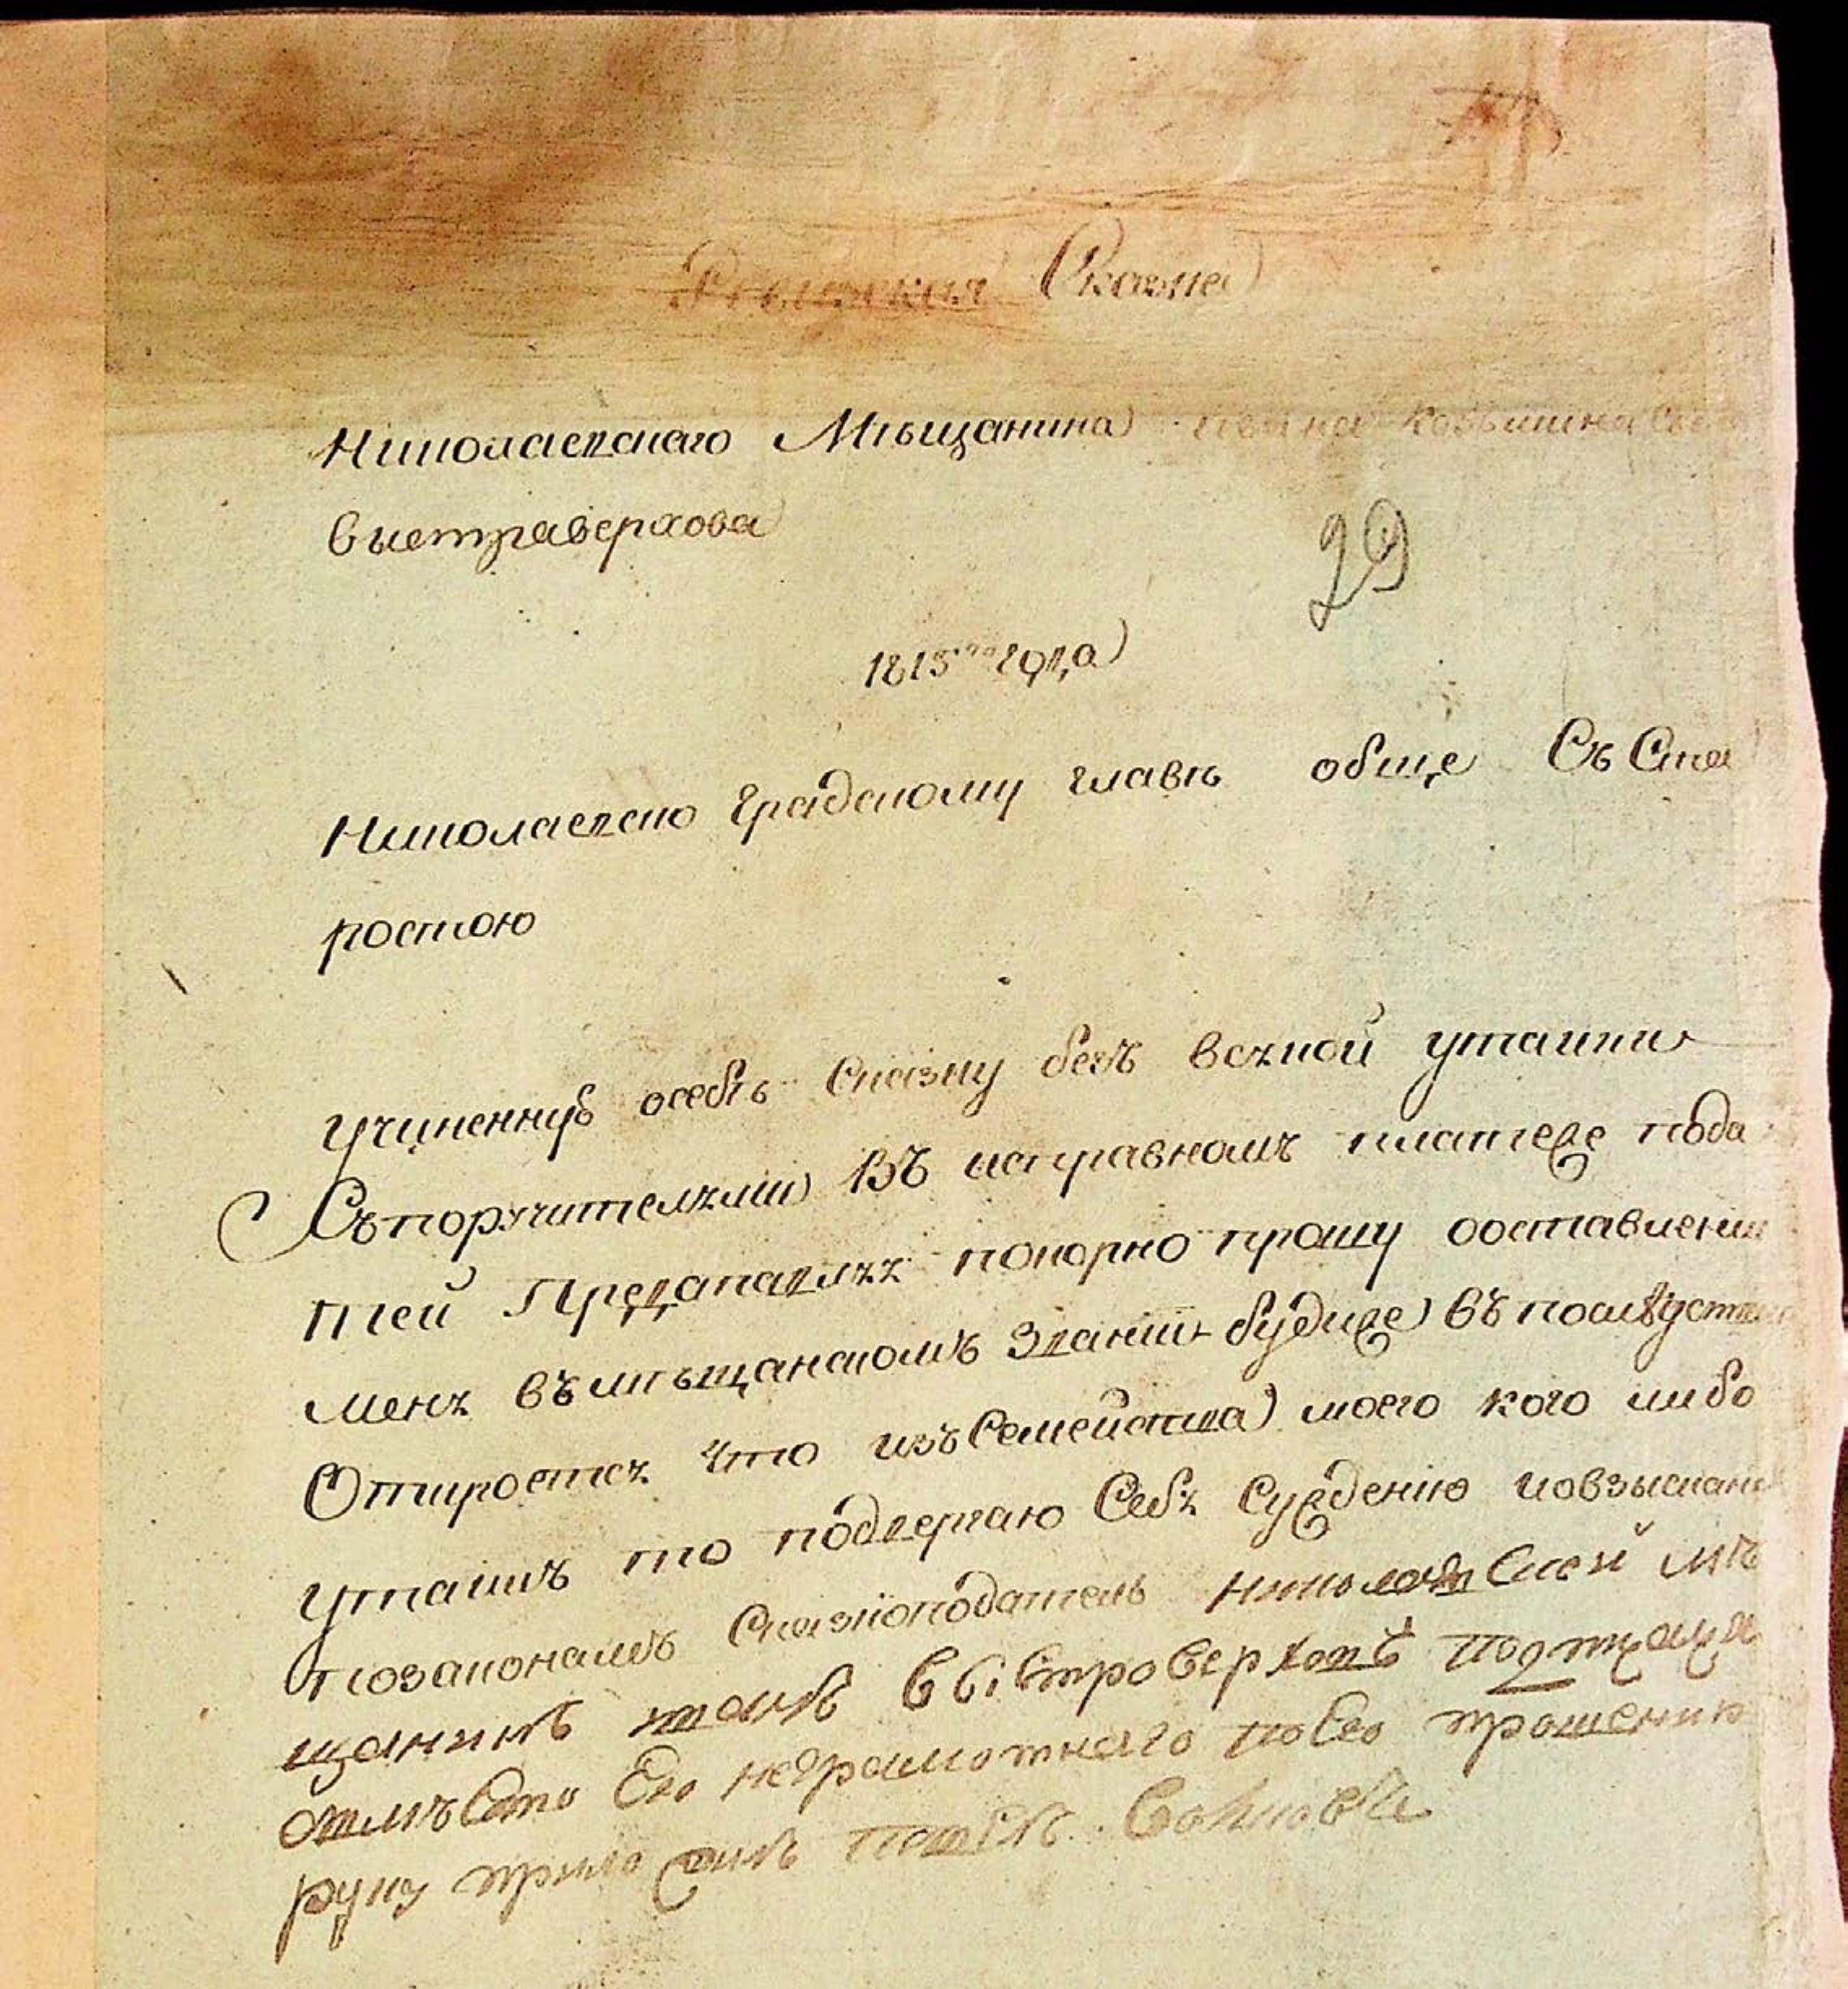 Ревизкия Сказка
Николаевскаго Мѣщанина Ивана Козьмина
Быстраверхова
29
1815го года
Николаевско Градскому главѣ обще Съ Ста
ростою
учиненную о себѣ Сказку безъ всякой утайки
Съ поручителями въ исправномъ платеже пода
тей Предавляя покорно прошу оставлении
меня въ мѣщанскомъ звании будиже въ послѣдстви
Откроется что изъ Семейства моего кого либо
утаилъ то подвергаю Себя Суждению и взыскани
по законамъ Сказкоподатель Николаевской мѣ
щанинъ Иванъ Быстроверховъ
вмѣсто Его неграмотнаго по Его прошению
руку приложилъ